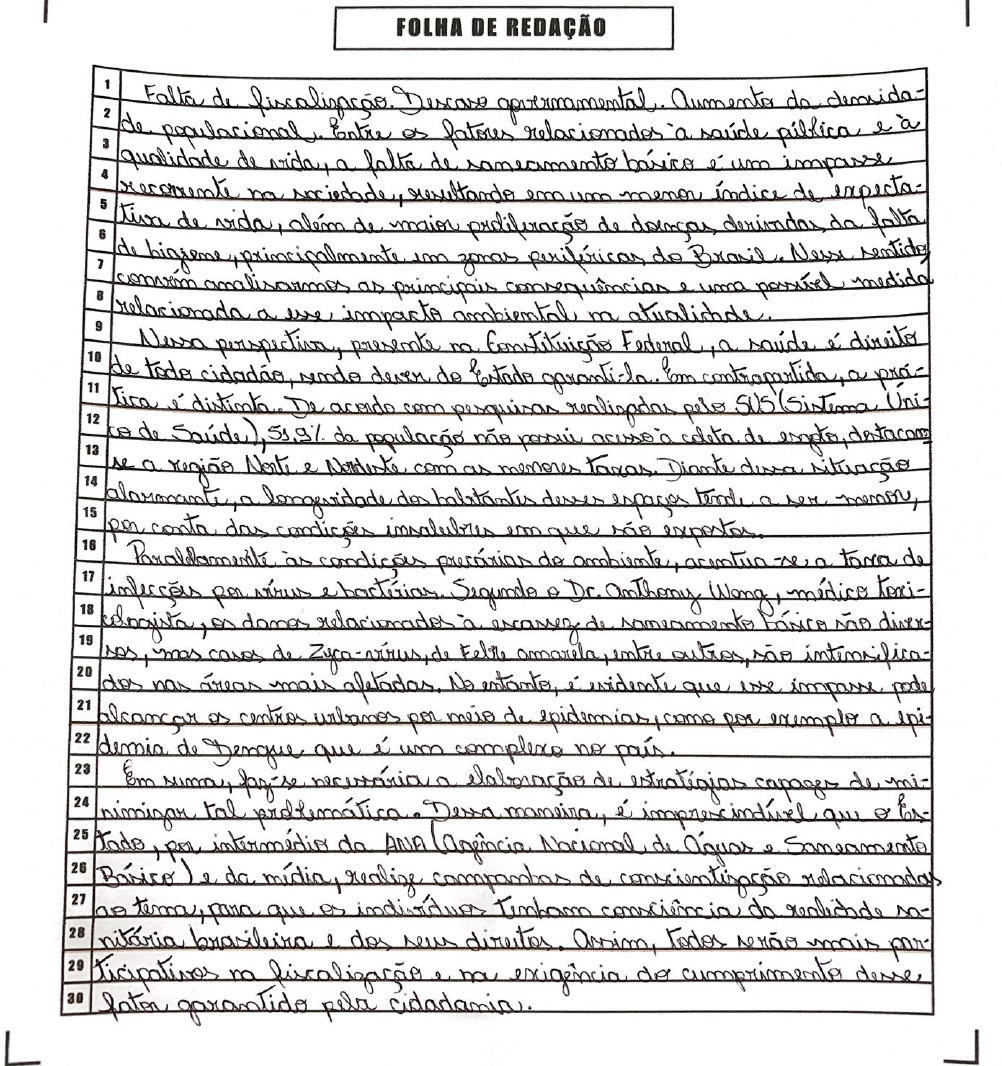 FOLHA DE REDAÇÃO
1 Falta de fiscalização. Descaso governamental. Aumento da densida-
2 de populacional. Entre os fatores relacionados à saúde pública e à
3 qualidade de vida, a falta de saneamento básico é um impasse
4 recorrente na sociedade, resultando em um menor índice de expecta-
5 tiva de vida, além de maior proliferação de doenças derivadas da falta
6 de higiene, principalmente em zonas periféricas do Brasil. Nesse sentido,
7 convém analisarmos as principais consequências e uma possível medida
8 relacionada a esse impacto ambiental na atualidade.
9 Nessa perspectiva, presente na Constituição Federal, a saúde é direito
10 de todo cidadão, sendo dever do Estado garanti-la. Em contrapartida, a prá-
11 tica é distinta. De acordo com pesquisas realizadas pelo SUS (Sistema Úni-
12 co de Saúde), 51,9% da população não possui acesso à coleta de esgoto, destacam-
13 se a região Norte e Nordeste com as menores taxas. Diante dessa situação
14 alarmante, a longevidade dos habitantes desses espaços tende a ser menor,
15 por conta das condições insalubres em que são expostos.
16 Paralelamente às condições precárias do ambiente, acentua-se a taxa de
17 infecções por vírus e bactérias. Segundo o Dr. Anthony Wong, médico toxi-
18 cologista, os danos relacionados à escassez de saneamento básico são diver-
19 sos, nos casos de Zyca-vírus, de Febre amarela, entre outros, são intensifica-
20 dos nas áreas mais afetadas. No entanto, é evidente que esse impasse pode
21 alcançar os centros urbanos por meio de epidemias, como por exemplo a epi-
22 demia de Dengue que é um complexo no país.
23 Em suma, faz-se necessária a elaboração de estratégias capazes de mi-
24 nimizar tal problemática. Dessa maneira, é imprescindível que o Es-
25 tado, por intermédio da ANA (Agência Nacional de Águas e Saneamento
26 Básico) e da mídia, realize campanhas de conscientização relacionadas
27 ao tema, para que os indivíduos tenham consciência da realidade sa-
28 nitária brasileira e dos seus direitos. Assim, todos serão mais par-
29 ticipativos na fiscalização e na exigência do cumprimento desse
30 fator garantido pela cidadania.